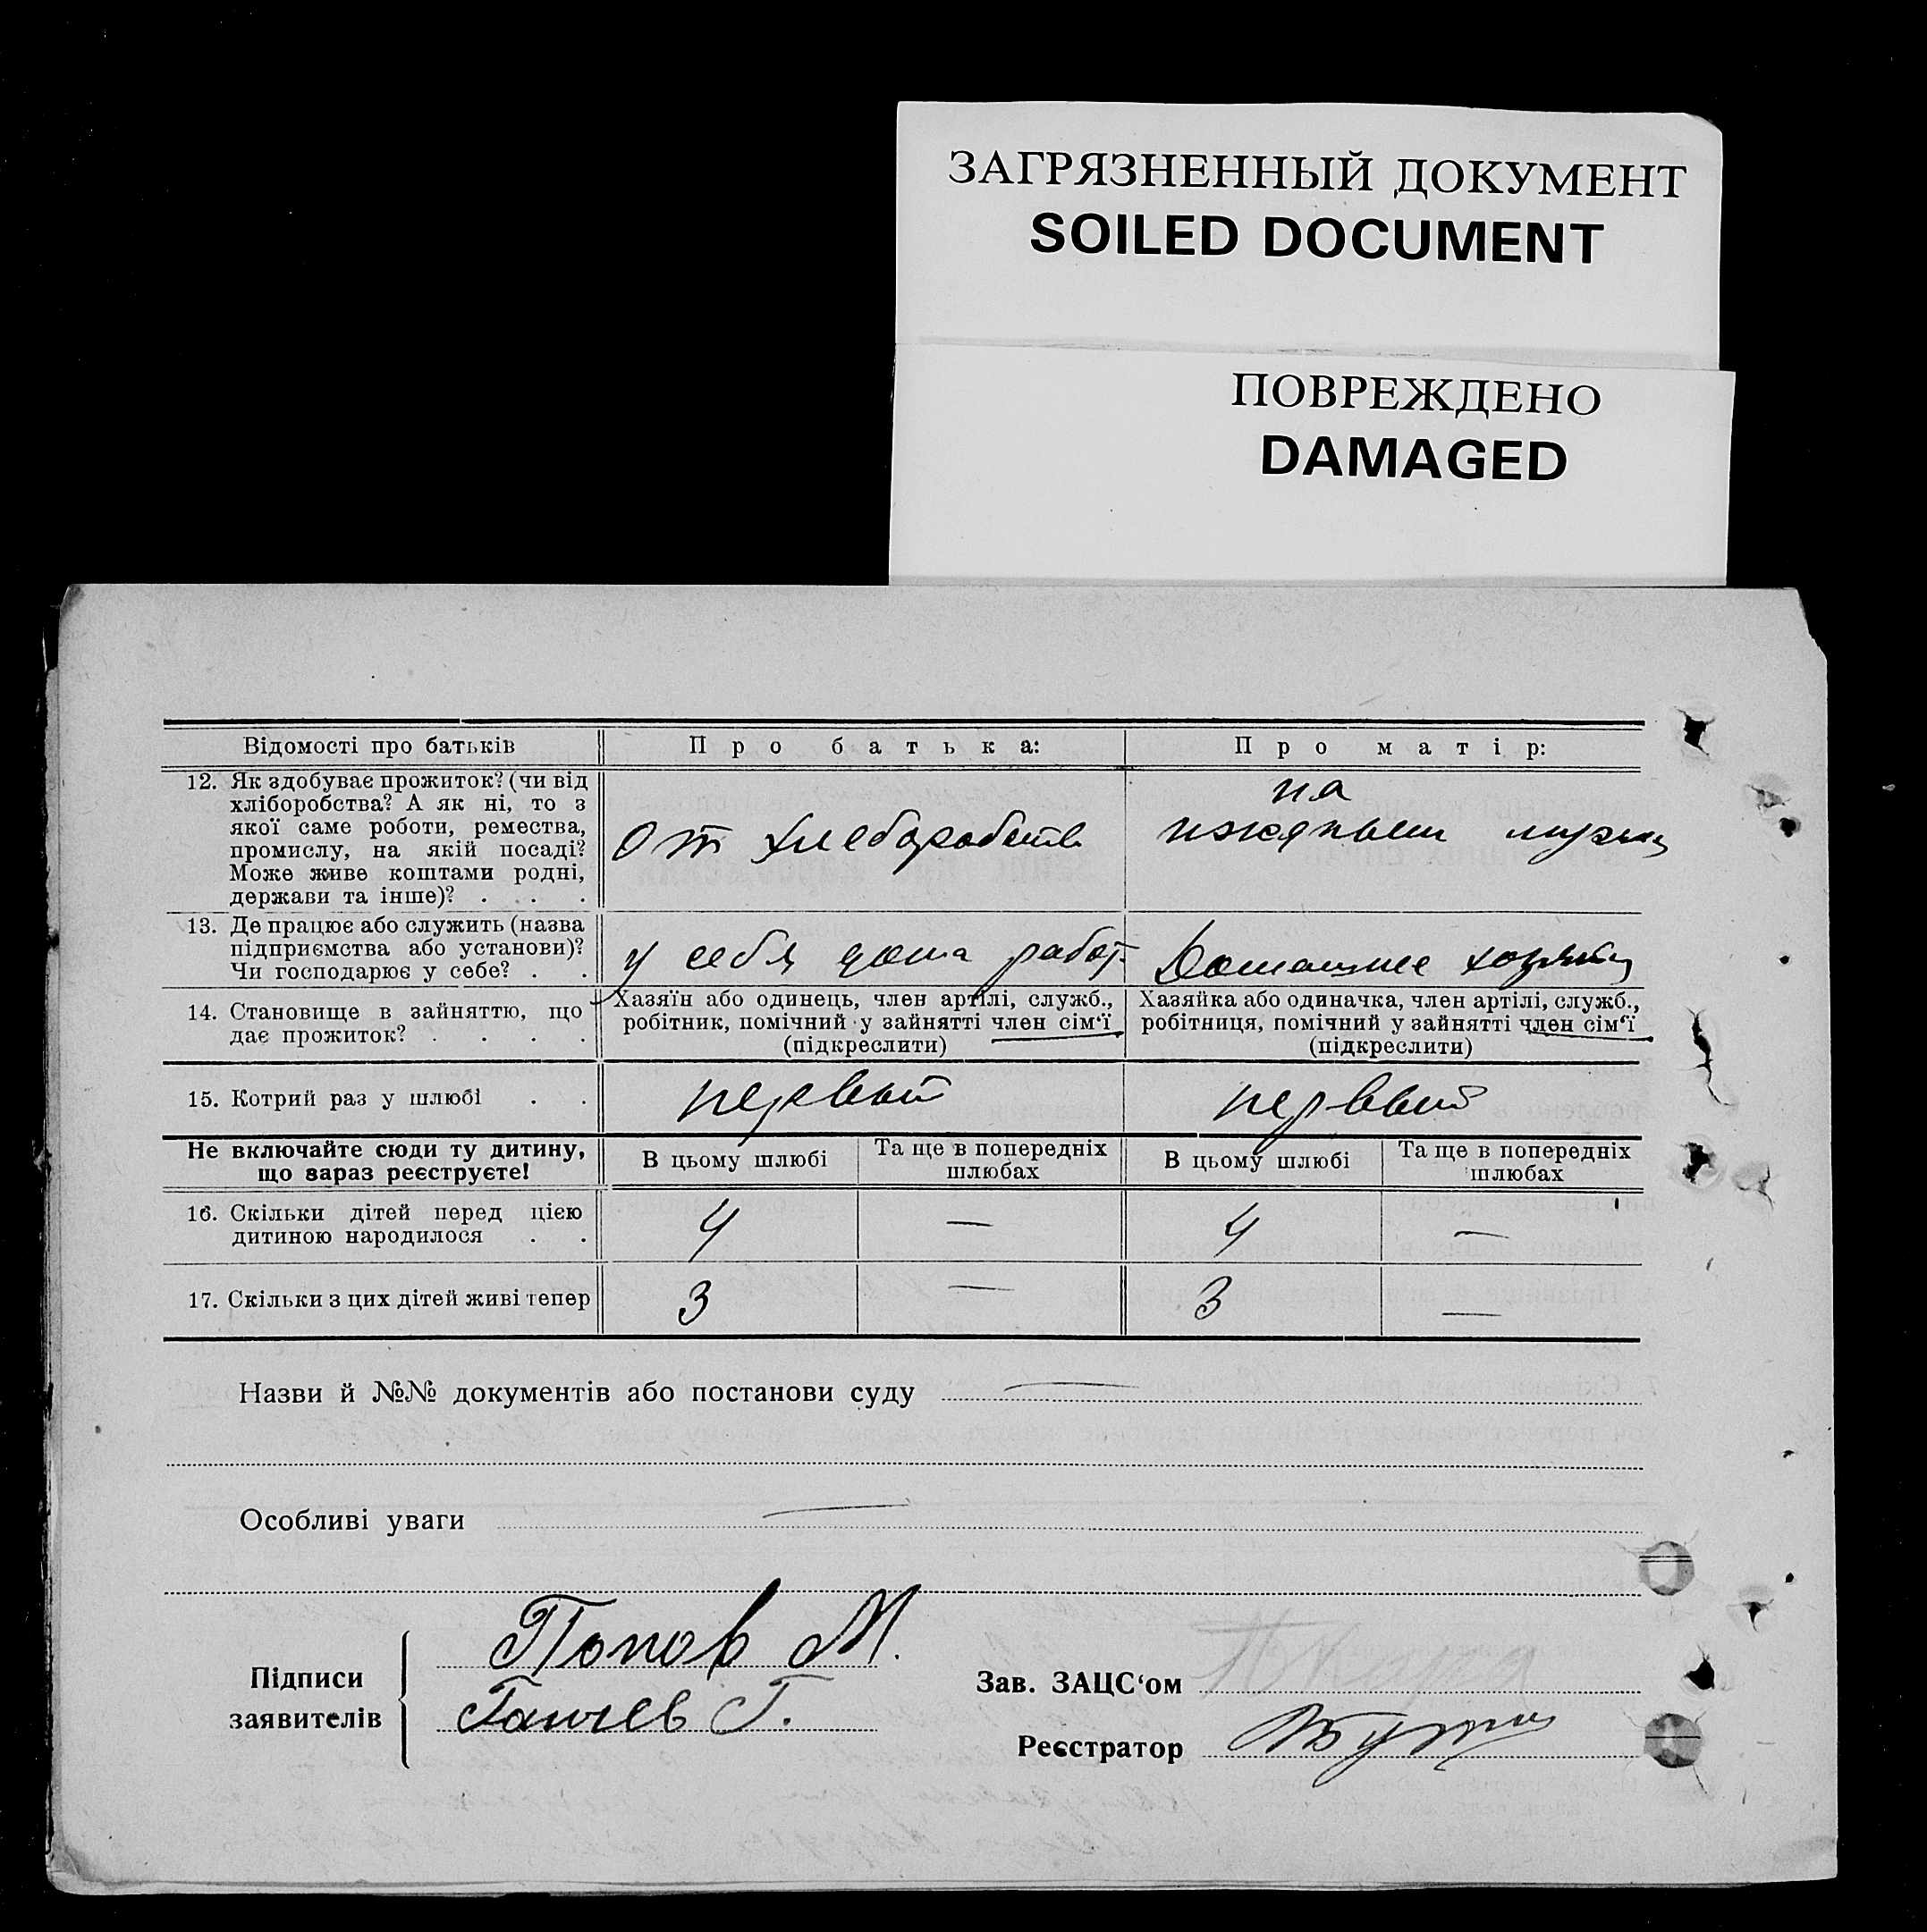 ЗАГРЯЗНЕННЫЙ ДОКУМЕНТ
SOILED DOCUMENT
ПОВРЕЖДЕНО
DAMAGED
Відомості про батьків
Про батька:
Про матір:
12. Як здобуває прожиток? (чи від
хліборобства? А як ні, то з
якої саме роботи, ремества,
промислу, на якій посаді?
Може живе коштами родні,
держави та інше)? . . .
От хлеборобств
на
13. Де працює або служить (назва
підприємства або установи)?
Чи господарює у себе? . .
у себя дома работ.
Домашнее
14. Становище в зайняттю, що
дає прожиток? . . . .
Хазяїн або одинець, член артілі, служб.,
робітник, помічний у зайнятті член сім'ї
(підкреслити)
Хазяйка або одиначка, член артілі, служб.,
робітниця, помічний у зайнятті член сім'ї
(підкреслити)
15. Котрий раз у шлюбі . .
первый
первый
Не включайте сюди ту дитину,
що зараз реєструєте!
В цьому шлюбі
Та ще в попередніх
шлюбах
В цьому шлюбі
Та ще в попередніх
шлюбах
16. Скільки дітей перед цією
дитиною народилося . .
4 — 4 —
17. Скільки з цих дітей живі тепер
3 — 3 —
Назви й №№ документів або постанови суду —
Особливі уваги —
Підписи
заявителів
Попов М.
Ганчев Г.
Зав. ЗАЦС'ом
Реєстратор